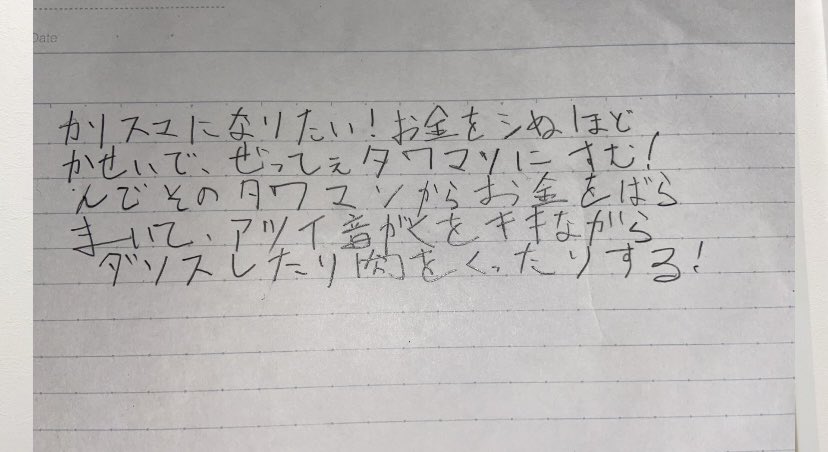 Date
カリスマになりたい！お金をシぬほど
かせいで、ぜってぇタワマンにすむ！
んでそのタワマンからお金をばら
まいて、アツイ音がくをキキながら
ダンスしたり肉をくったりする！